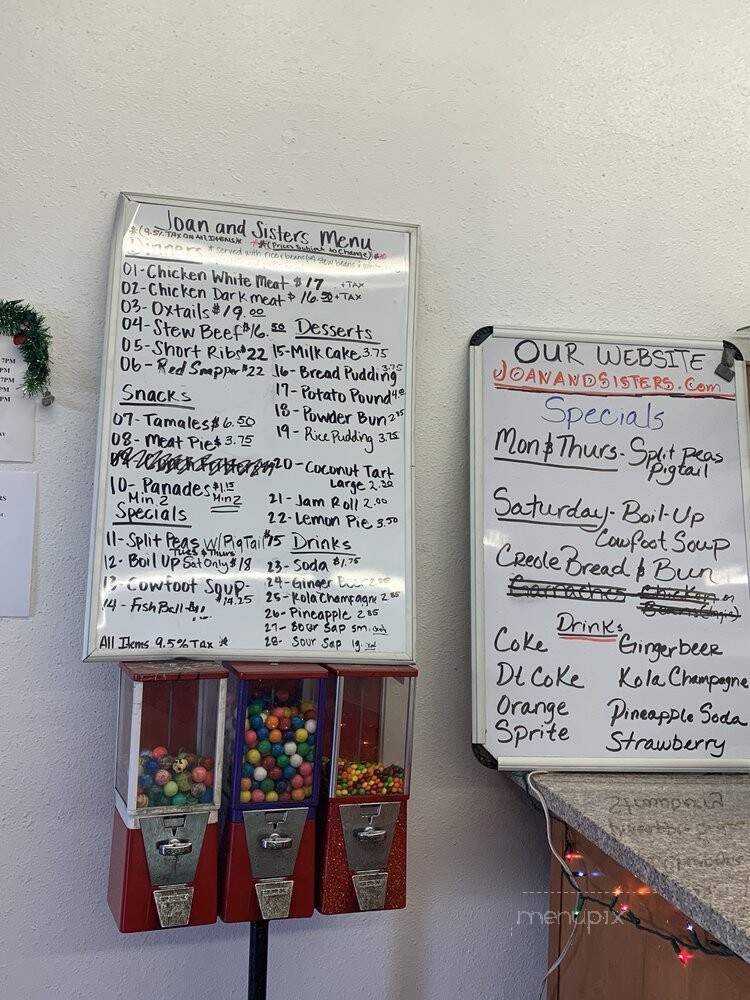 Joan and Sisters Menu
*(9.5% TAX ON ALL ITEMS)* *(Prices Subject to Change)*
Dinners * served with rice & beans (or) stew beans
01-Chicken White Meat $17 +TAX
02-Chicken Dark meat $16.50 +TAX
03-Oxtails $19.00
04-Stew Beef $16.50
05-Short Ribs $22
06-Red Snapper $22
Snacks
07-Tamales $6.50
08-Meat Pie $3.75
10-Panades $1.15
Min. 2 Min 2
Specials
11-Split Peas w/PigTail $15
Tues & Thurs
12-Boil Up Sat Only $18
13-Cowfoot Soup-
$14.25
14-Fish Ball-
All Items 9.5% Tax *
Desserts
15-Milk Cake 3.75
16-Bread Pudding 3.75
17-Potato Pound 4.00
18-Powder Bun 2.75
19-Rice Pudding 3.75
20-Coconut Tart
Large 2.30
21-Jam Roll 2.00
22-Lemon Pie 3.50
Drinks
23-Soda $1.75
24-Ginger Beer 2.85
25-Kola Champagne 2.85
26-Pineapple 2.85
27-Sour Sap sm.
28-Sour Sap lg.
OUR WEBSITE
JOANANDSISTERS.Com
Specials
Mon & Thurs-Split Peas
Pigtail
Saturday-Boil-Up
Cowfoot Soup
Creole Bread & Bun
Garnaches Chicken or
Drinks
Coke
Dt Coke
Orange
Sprite
Gingerbeer
Kola Champagne
Pineapple Soda
Strawberry
7PM
7PM
7PM
PM
PM
RS
menupix